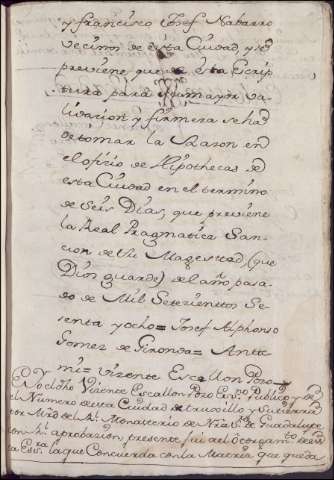 y francisco Josef Nabarro
vecinos de esta Ciudad, y se
previene, que a esta Escrip
tura para su mayor va-
lidacion y firmeza se ha
de tomar la Razon en
el oficio de Hipothecas de
esta Ciudad en el termino
de Seis Dias, que previene
la Real Pragmatica San-
cion de Su Magestad (que
Dios guarde) del año pasa
do de Mil Setezientos Se
senta y ocho = Josef Alphonso
Gomez de Gironda = Antte
mi = Vizente Escallon Pozo =
Yo el dho Vizente Escallon Pozo Essno Publico y
el Numero de esta Ciudad de truxillo y Su tierra
por Mrd del Rl Monasterio de Nra Sra de Guadalupe
con Rl aprobazion, presente fui al otorgamto de es
ta Essra la que Concuerda con la Matriz que queda